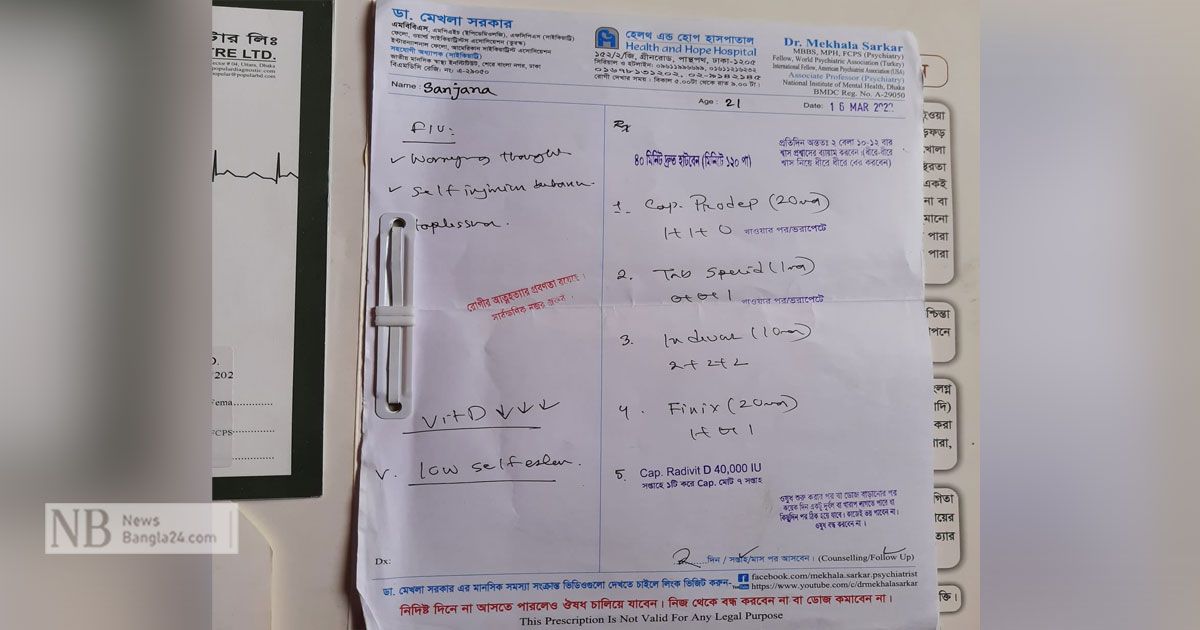 টার লিঃ
RE LTD.
ডা. মেখলা সরকার
এমবিবিএস, এমপিএইচ (ইপিডেমিওলজি), এফসিপিএস (সাইকিয়াট্রি)
ফেলো, ওয়ার্ল্ড সাইকিয়াট্রিস্টস এসোসিয়েশন (তুরস্ক)
ইন্টারন্যাশনাল ফেলো, আমেরিকান সাইকিয়াট্রিস্ট এসোসিয়েশন
সহযোগী অধ্যাপক (সাইকিয়াট্রি)
জাতীয় মানসিক স্বাস্থ্য ইনস্টিটিউট, শেরে বাংলা নগর, ঢাকা
বিএমডিসি রেজি. নং: এ-২৯০৫০
হেলথ এন্ড হোপ হাসপাতাল
Health and Hope Hospital
১৫২/২/জি, গ্রীনরোড, পান্থপথ, ঢাকা-১২০৫
Dr. Mekhala Sarkar
MBBS, MPH, FCPS (Psychiatry)
Fellow, World Psychiatric Association (Turkey)
International Fellow, American Psychiatric Association (USA)
Associate Professor (Psychiatry)
National Institute of Mental Health, Dhaka
BMDC Reg. No. A-29050
Name: Sanjana
Age: 21
Date: 16 MAR
F/U:
Worrying thought
Self
রোগীর আত্মহত্যার প্রবণতা রয়েছে।
সার্বক্ষণিক নজর রাখুন।
Vit D ↓↓↓
low self esteem.
Dx:
Rx
৪০ মিনিট দ্রুত হাটবেন (মিনিটে ১২০ পা)
প্রতিদিন অন্ততঃ ২ বেলা ১০-১২ বার
শ্বাস প্রশ্বাসের ব্যায়াম করবেন (ধীরে-ধীরে
শ্বাস নিয়ে ধীরে ধীরে বের করবেন)
1. Cap. Prodep (20mg)
1+1+0 খাওয়ার পর/ভরাপেটে
2. Tab (1mg)
0+0+1 খাওয়ার পর/ভরাপেটে
3. Indever (10mg)
2+2+2
4. Finix (20mg)
1+0+1
5. Cap. Radivit D 40,000 IU
সপ্তাহে ১টি করে Cap. মোট ৭ সপ্তাহ
ওষুধ শুরু করার পর বা ডোজ বাড়ানোর পর
কয়েক দিন একটু দুর্বল বা খারাপ লাগতে পারে যা
কিছুদিন পর ঠিক হয়ে যাবে। কাজেই ভয় পাবেন না।
ওষুধ বন্ধ করবেন না।
2 দিন / সপ্তাহ/মাস পর আসবেন। (Counselling/Follow Up)
ডা. মেখলা সরকার এর মানসিক সমস্যা সংক্রান্ত ভিডিওগুলো দেখতে চাইলে লিংক ভিজিট করুন-
facebook.com/mekhala.sarkar.psychiatrist
https://www.youtube.com/c/drmekhalasarkar
নির্দিষ্ট দিনে না আসতে পারলেও ঔষধ চালিয়ে যাবেন। নিজ থেকে বন্ধ করবেন না বা ডোজ কমাবেন না।
This Prescription is Not Valid For Any Legal Purpose
NB News
Bangla24.com